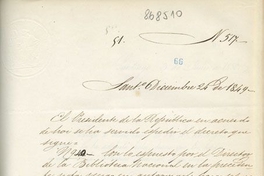 868510
51.
N. 517.
66
Sant.º Diciembre 26 de 1849
El Presidente de la República en acuerdo
de hoi se ha servido espedir el decreto que
sigue
Con lo espuesto por el Director
de la Biblioteca Nacional en la